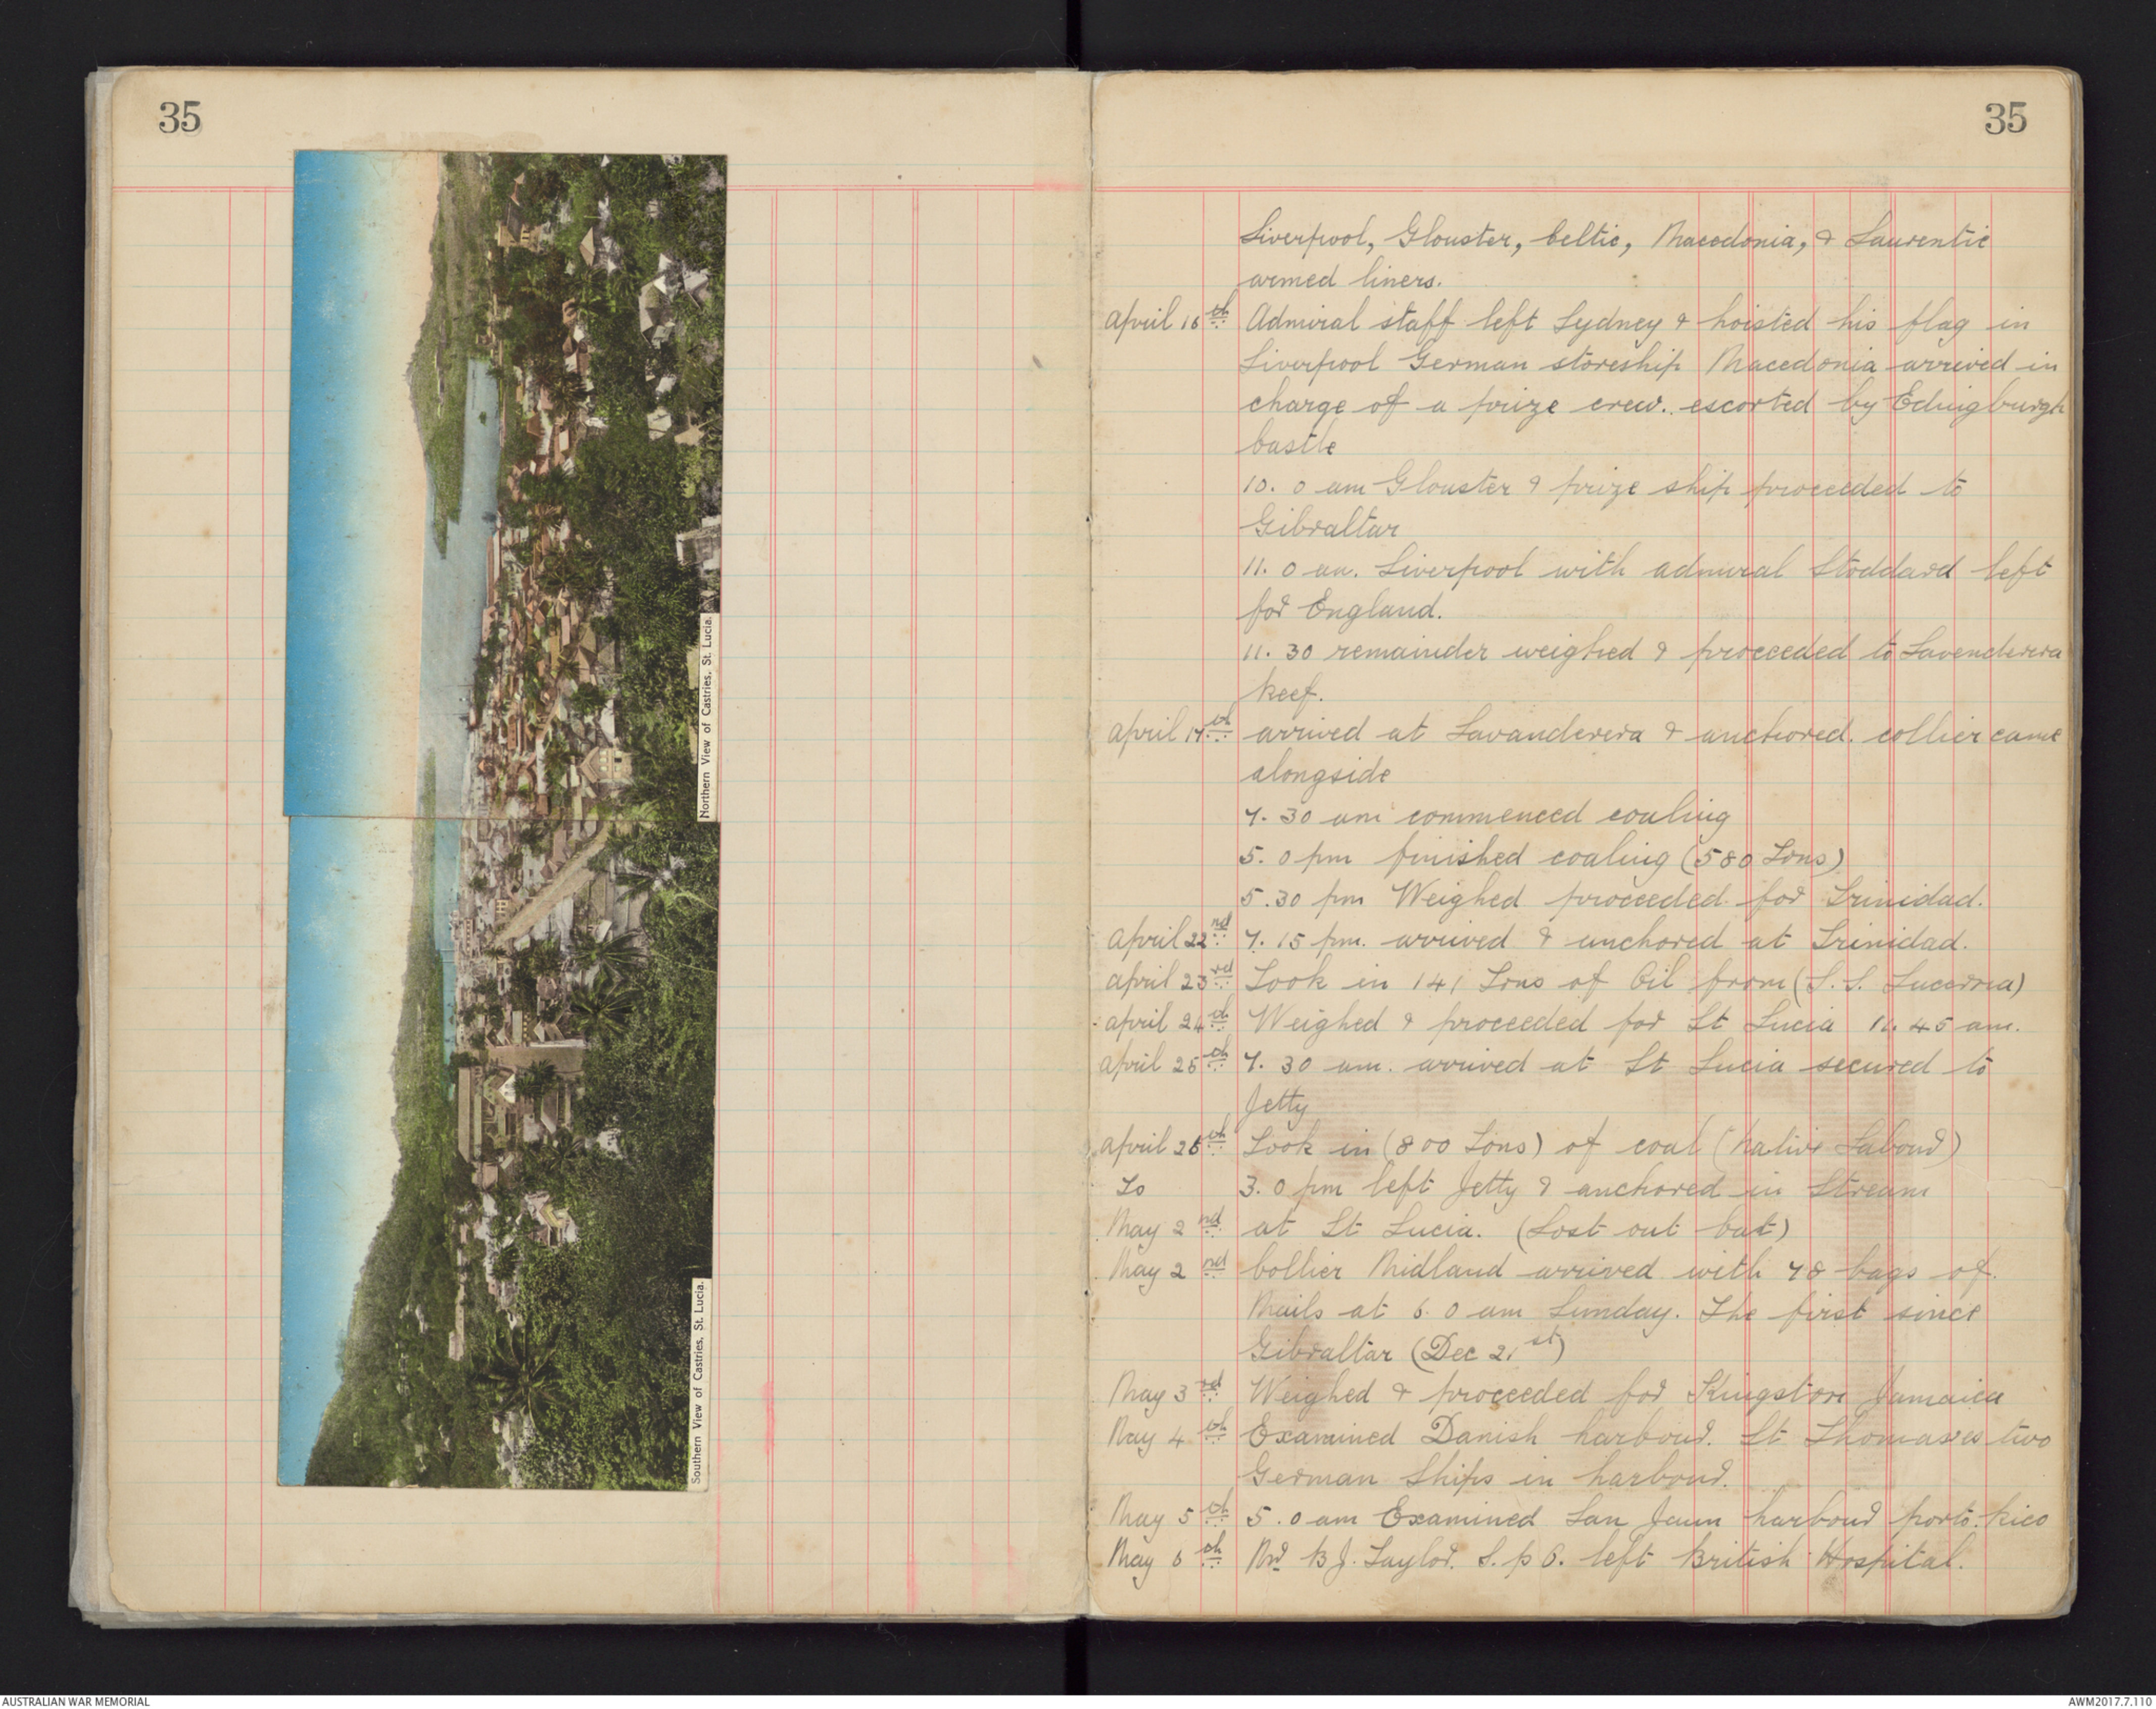 35
Northern View of Castries, St. Lucia.
Southern View of Castries, St. Lucia.
35
Liverpool, Glouster, Celtic, Macedonia, & Laurentic
armed liners.
April 16th Admiral staff left Sydney & hoisted his flag in
Liverpool German storeship Macedonia arrived in
charge of a prize crew. escorted by Edingburgh
Castle
10. 0 am Glouster & prize ship proceeded to
Gibraltar
11. 0 am. Liverpool with admiral Stoddard left
for England.
11. 30 remainder weighed & proceeded to Lavenderera
Reef.
April 17th arrived at Lavanderera & anchored. collier came
alongside
7. 30 am commenced coaling
5. 0 pm finished coaling (580 Tons)
5. 30 pm Weighed proceeded for Trinidad.
April 22nd 7. 15 pm. arrived & anchored at Trinidad.
April 23rd Took in 141 Tons of Oil from (S. S.
April 24th Weighed & proceeded for St Lucia 11. 45 am.
April 25th 7. 30 am. arrived at St Lucia secured to
Jetty
April 26th Took in (800 Tons) of coal (Native Labour)
To 3. 0 pm left Jetty & anchored in Stream
May 2nd at St Lucia. (Lost out Cat)
May 2nd Collier Midland arrived with 78 bags of
Mails at 6. 0 am Sunday. The first since
Gibraltar (Dec 21st)
May 3rd Weighed & proceeded for Kingston Jamaica
May 4th Examined Danish harbour. St Thomases two
German Ships in harbour.
May 5th 5. 0 am Examined San Jaun harbour porto. Rico
May 6th Mr B J. Taylor. S. P. O. left British Hospital.
AUSTRALIAN WAR MEMORIAL
AWM2017.7.110